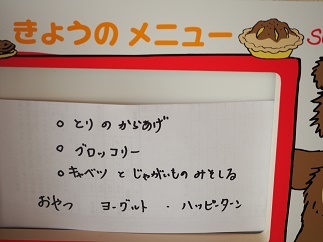 きょうの メニュー
○ とりの からあげ
○ ブロッコリー
○ キャベツ と じゃがいもの みそしる
おやつ ヨーグルト ・ ハッピーターン